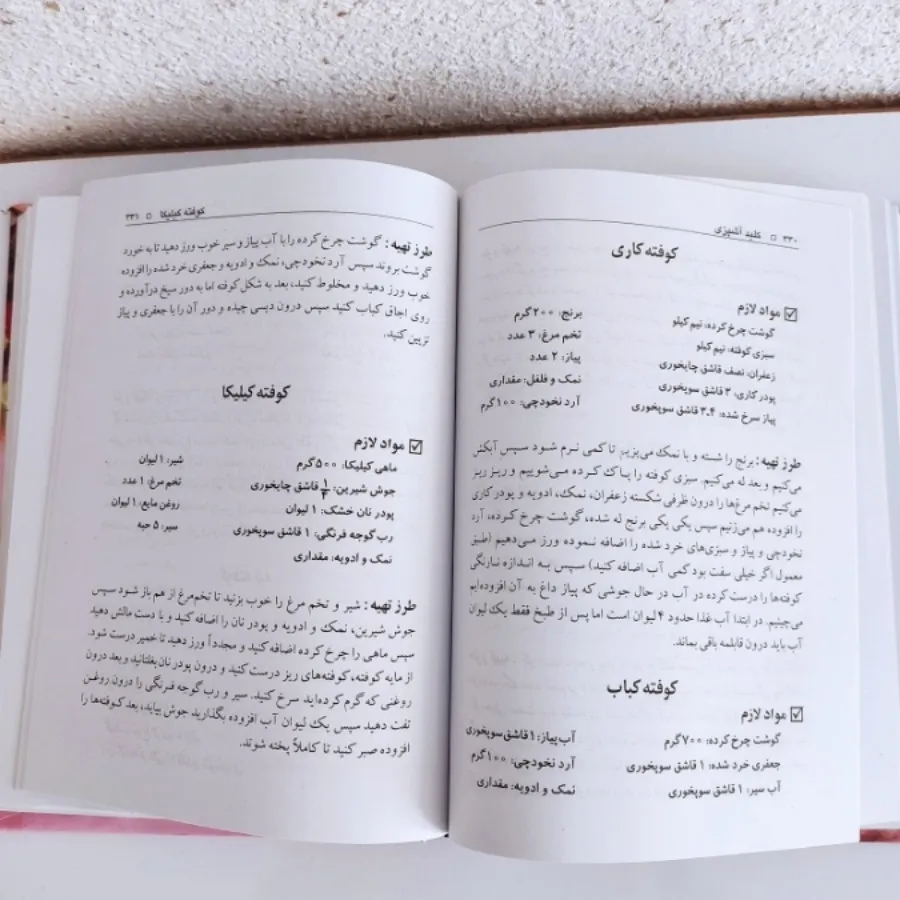 ۳۳۰ □ کلید آشپزی
کوفته کاری
☑ مواد لازم
گوشت چرخ کرده: نیم کیلو
برنج: ۲۰۰ گرم
سبزی کوفته: نیم کیلو
تخم مرغ: ۳ عدد
زعفران: نصف قاشق چایخوری
پیاز: ۲ عدد
پودر کاری: ۳ قاشق سوپخوری
نمک و فلفل: مقداری
پیاز سرخ شده: ۴ـ۳ قاشق سوپخوری
آرد نخودچی: ۱۰۰ گرم
طرز تهیه: برنج را شسته و با نمک می‌پزیم تا کمی نرم شود سپس آبکش
می‌کنیم و بعد له می‌کنیم. سبزی کوفته را پاک کرده می‌شوییم و ریز ریز
می‌کنیم تخم مرغ‌ها را درون ظرفی شکسته زعفران، نمک، ادویه و پودر کاری
را افزوده هم می‌زنیم سپس یکی یکی برنج له شده، گوشت چرخ کرده، آرد
نخودچی و پیاز و سبزی‌های خرد شده را اضافه نموده ورز می‌دهیم (طبق
معمول اگر خیلی سفت بود کمی آب اضافه کنید) سپس به اندازه نارنگی
کوفته‌ها را درست کرده در آب در حال جوشی که پیاز داغ به آن افزوده‌ایم
می‌چینیم. در ابتدا آب غذا حدود ۴ لیوان است اما پس از طبخ فقط یک لیوان
آب باید درون قابلمه باقی بماند.
کوفته کباب
☑ مواد لازم
گوشت چرخ کرده: ۷۰۰ گرم
آب پیاز: ۱ قاشق سوپخوری
جعفری خرد شده: ۱ قاشق سوپخوری
آرد نخودچی: ۱۰۰ گرم
آب سیر: ۱ قاشق سوپخوری
نمک و ادویه: مقداری
کوفته کیلیکا □ ۳۳۱
طرز تهیه: گوشت چرخ کرده را با آب پیاز و سیر خوب ورز دهید تا به خورد
گوشت بروند سپس آرد نخودچی، نمک و ادویه و جعفری خرد شده را افزوده
خوب ورز دهید و مخلوط کنید، بعد به شکل کوفته اما به دور سیخ درآورده و
روی اجاق کباب کنید سپس درون دیسی چیده و دور آن را با جعفری و پیاز
تزیین کنید.
کوفته کیلیکا
☑ مواد لازم
ماهی کیلیکا: ۵۰۰ گرم
شیر: ۱ لیوان
جوش شیرین: ۱/۲ قاشق چایخوری
تخم مرغ: ۱ عدد
پودر نان خشک: ۱ لیوان
روغن مایع: ۱ لیوان
رب گوجه فرنگی: ۱ قاشق سوپخوری
سیر: ۵ حبه
نمک و ادویه: مقداری
طرز تهیه: شیر و تخم مرغ را خوب بزنید تا تخم‌مرغ از هم باز شود سپس
جوش شیرین، نمک و ادویه و پودر نان را اضافه کنید و با دست مالش دهید
سپس ماهی را چرخ کرده اضافه کنید و مجدداً ورز دهید تا خمیر درست شود.
از مایه کوفته، کوفته‌های ریز درست کنید و درون پودر نان بغلتانید و بعد درون
روغنی که گرم کرده‌اید سرخ کنید. سیر و رب گوجه فرنگی را درون روغن
تفت دهید سپس یک لیوان آب افزوده بگذارید جوش بیاید، بعد کوفته‌ها را
افزوده صبر کنید تا کاملاً پخته شوند.